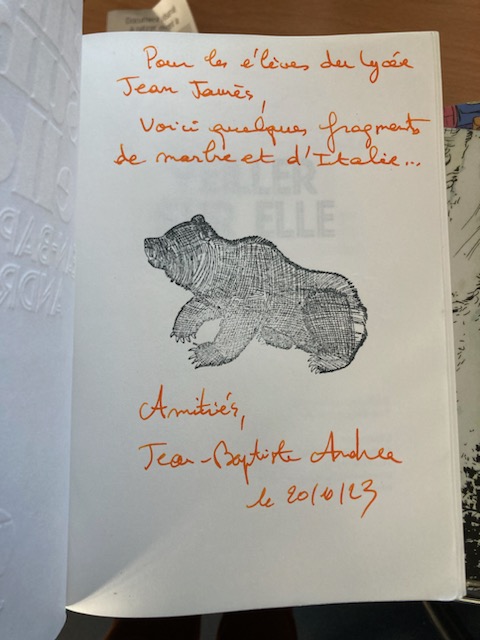 Pour les élèves du lycée
Jean Jaurès,
Voici quelques fragments
de marbre et d'Italie...
Amitiés,
Jean-Baptiste Andrea
le 20/10/23